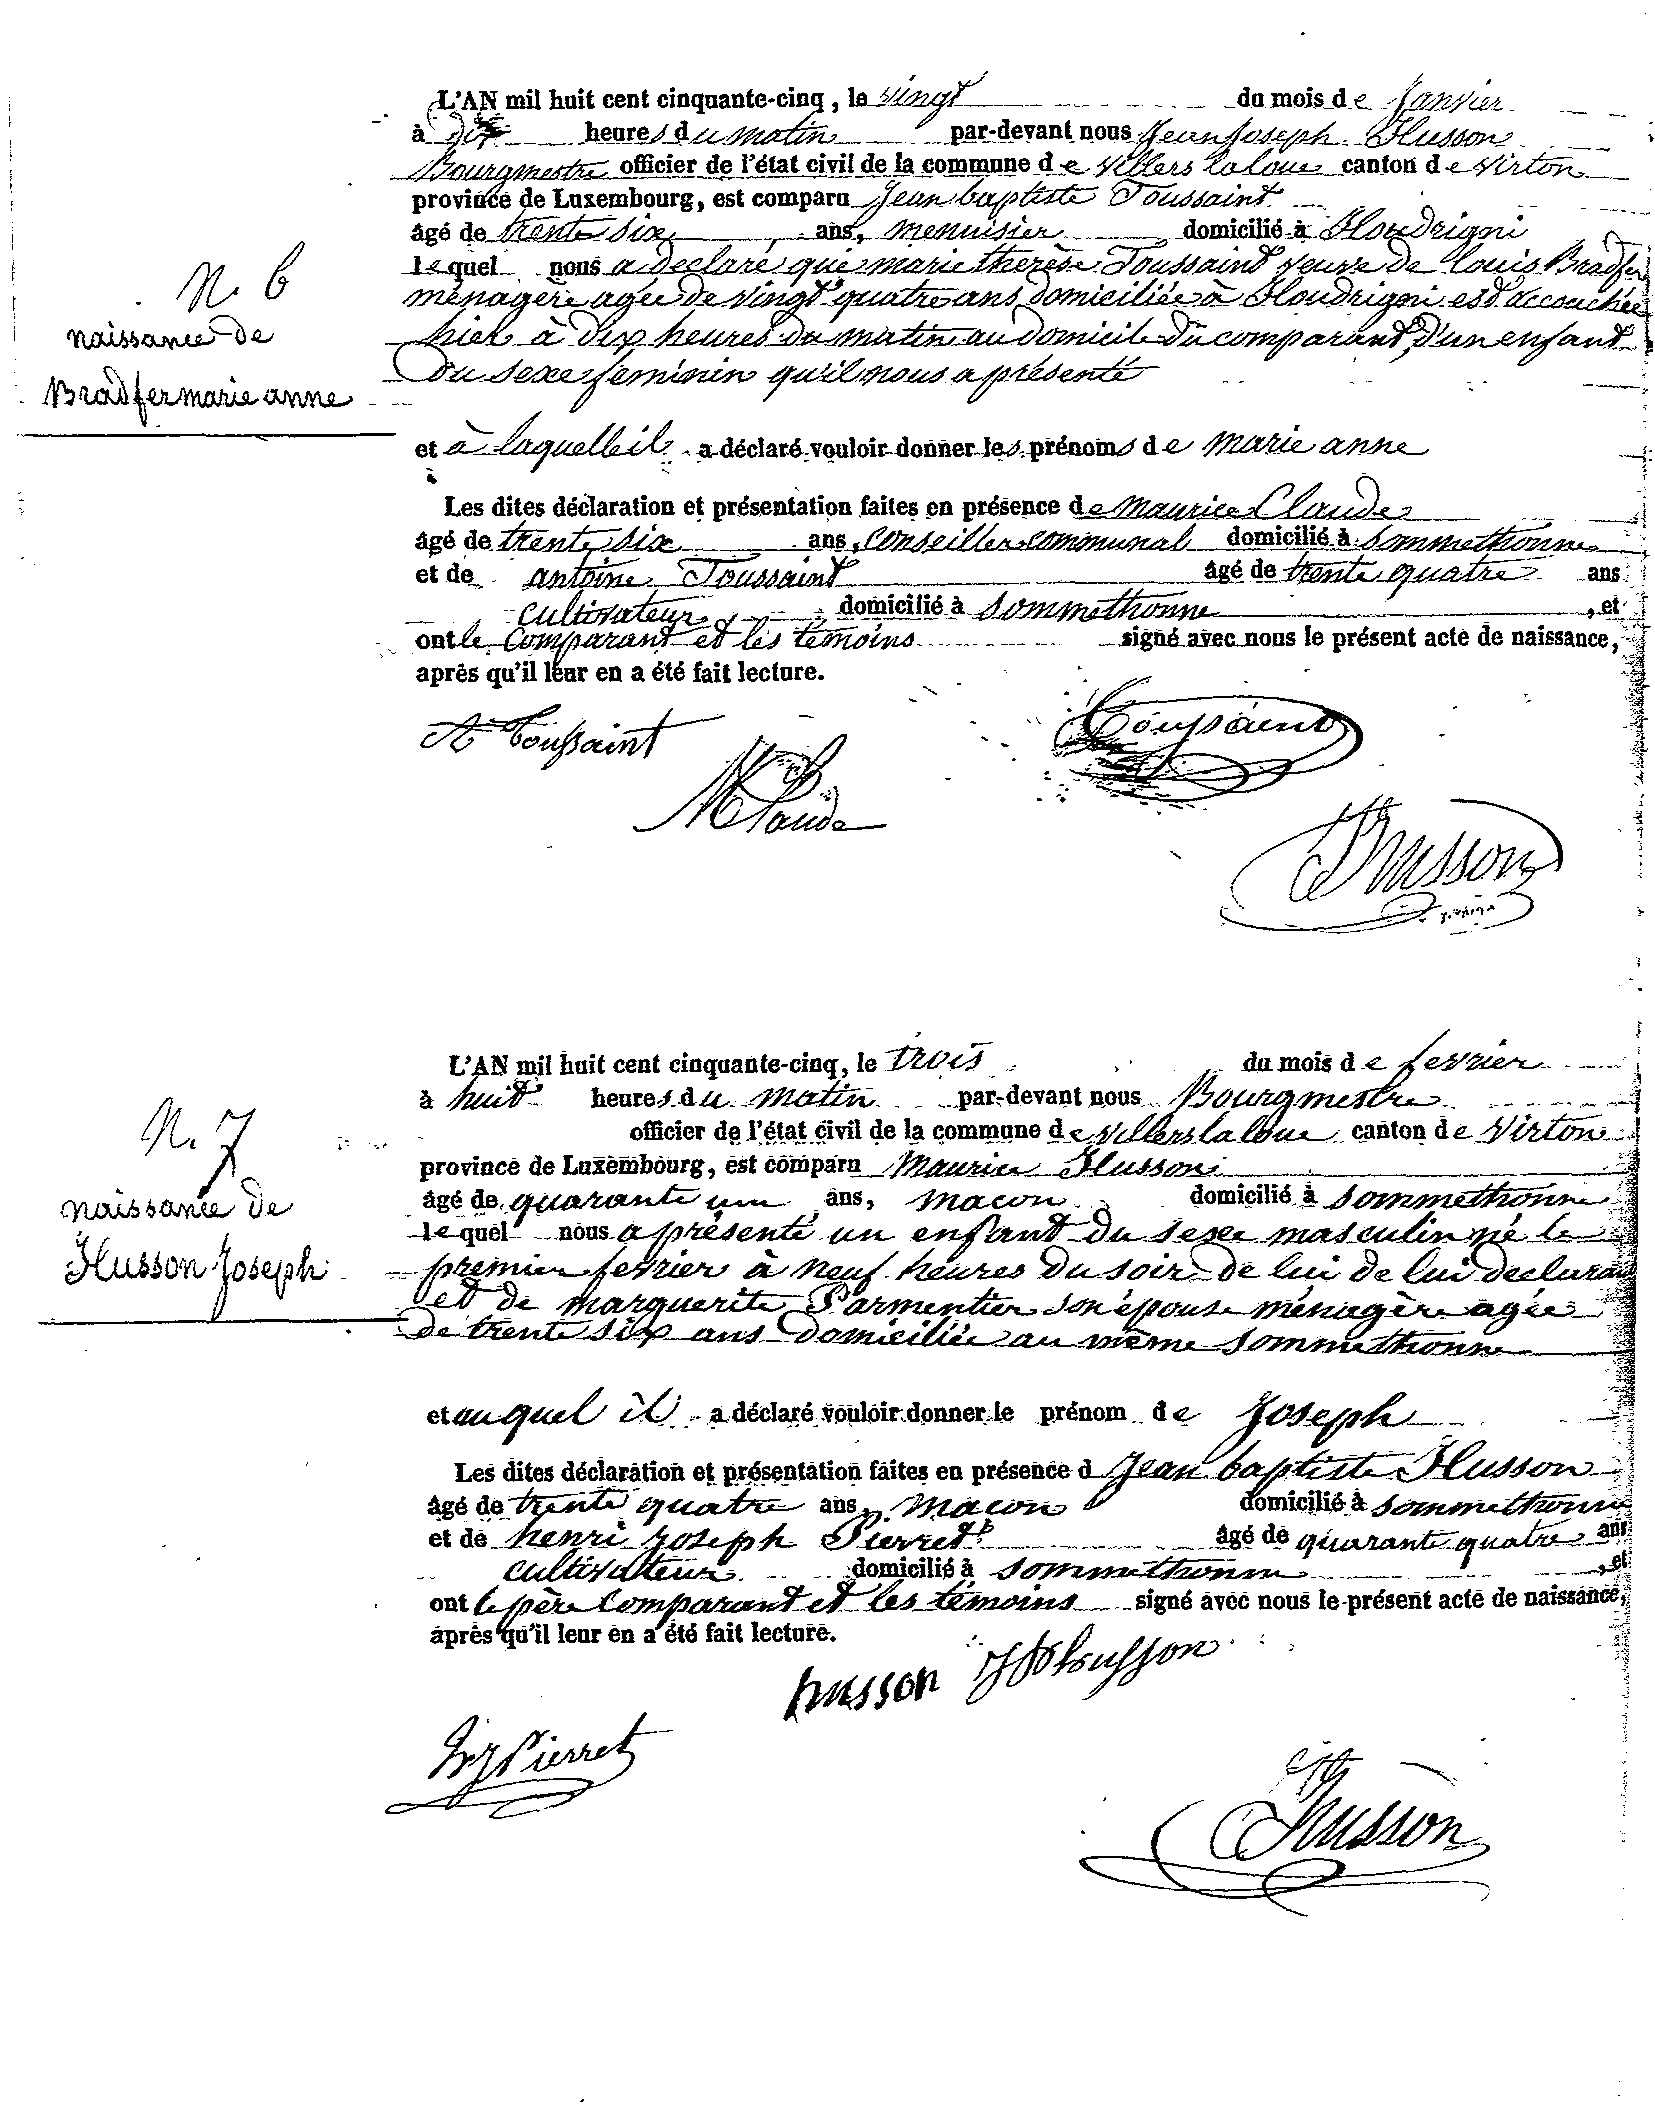 L'AN mil huit cent cinquante-cinq, le vingt du mois de Janvier
à dix heures du matin par-devant nous Jean Joseph Husson
Bourgmestre officier de l'état civil de la commune de villers la loue canton de virton
province de Luxembourg, est comparu Jean baptiste Toussaint
âgé de trente six ans, menuisier domicilié à Houdrigni
lequel nous a declaré que marie therèse Toussaint veuve de louis Bradfer
N. 6
ménagère agée de vingt quatre ans domiciliée à Houdrigni est accouchée
naissance de
hier à dix heures du matin au domicile du comparant, d'un enfant
du sexe féminin qu'il nous a présenté
Bradfer marie anne
et à laquelle il a déclaré vouloir donner les prénoms de marie anne
Les dites déclaration et présentation faites en présence de maurice Claude
âgé de trente six ans, conseiller communal domicilié à sommethonne
et de antoine Toussaint âgé de trente quatre ans
cultivateur domicilié à sommethonne, et
ont le comparant et les témoins signé avec nous le présent acte de naissance,
après qu'il leur en a été fait lecture.
A Toussaint
Toussaint
M Claude
Husson
L'AN mil huit cent cinquante-cinq, le trois du mois de fevrier
à huit heures du matin par-devant nous Bourgmestre
N. 7
officier de l'état civil de la commune de villers la loue canton de virton
province de Luxembourg, est comparu Maurice Husson
âgé de quarante un ans, macon domicilié à sommethonne
naissance de
lequel nous a présenté un enfant du sexe masculin né le
Husson Joseph
premier fevrier à neuf heures du soir de lui de lui declarant
et de marguerite Parmentier son épouse ménagère agée
de trente six ans domiciliée au même sommethonne
et auquel il a déclaré vouloir donner le prénom de Joseph
Les dites déclaration et présentation faites en présence d Jean baptiste Husson
âgé de trente quatre ans, macon domicilié à sommethonne
et de henri joseph Pierret âgé de quarante quatre ans
cultivateur domicilié à sommethonne, et
ont le père comparant et les témoins signé avec nous le présent acte de naissance,
après qu'il leur en a été fait lecture.
husson
hj Pierret
Husson